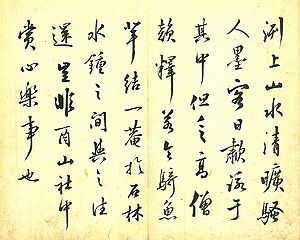 上山水清曠騷
人墨客日游于
其中但乏高僧
韻釋若令騎魚
輩結一菴於石林
水鐘之間與之往
還山社中
賞心樂事也